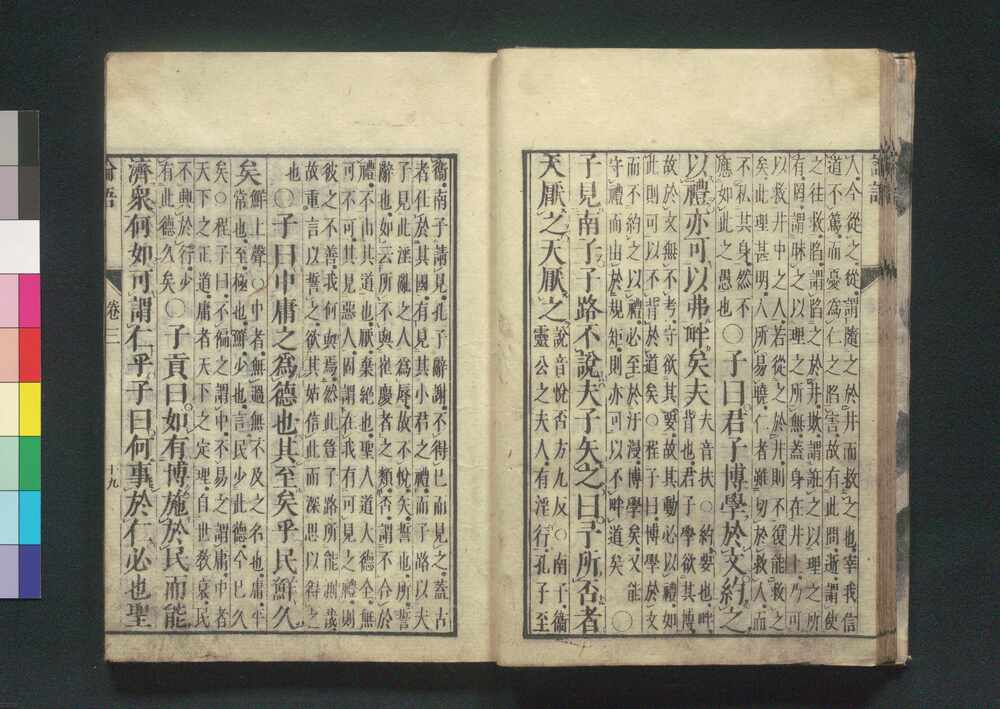 論語
人今從之從謂隨之於井而救之也宰我信
道不篤而憂爲仁之陷害故有此問逝謂使
之往救陷謂陷之於井欺謂誑之以理之所
有罔謂昧之以理之所無蓋身在井上乃可
以救井中之人若從之於井則不復能救之
矣此理甚明人所易曉仁者雖切於救人而
不私其身然不
應如此之愚也
○子曰君子博學於文約之
以禮亦可以弗畔矣夫
夫音扶○約要也畔
背也君子學欲其博
故於文無不考守欲其要故其動必以禮如
此則可以不背於道矣○程子曰博學於文
而不約之以禮必至於汗漫博學矣又能
守禮而由於規矩則亦可以不畔道矣
○
子見南子子路不說夫子矢之曰予所否者
天厭之天厭之
說音悅否方九反○南子衛
靈公之夫人有淫行孔子至
衛南子請見孔子辭謝不得已而見之蓋古
者仕於其國有見其小君之禮而子路以夫
子見此淫亂之人爲辱故不悅矢誓也所誓
辭也如云所不與崔慶者之類否謂不合於
禮不由其道也厭棄絶也聖人道大德全無
可不可其見惡人固謂在我有可見之禮則
彼之不善我何與焉然此豈子路所能測哉
故重言以誓之欲其姑信此而深思以得之
也
○子曰中庸之爲德也其至矣乎民鮮久
矣
鮮上聲○中者無過無不及之名也庸平
常也至極也鮮少也言民少此德今已久
矣○程子曰不偏之謂中不易之謂庸中者
天下之正道庸者天下之定理自世教衰民
不興於行少
有此德久矣
○子貢曰如有博施於民而能
濟衆何如可謂仁乎子曰何事於仁必也聖
論語
卷三
十九